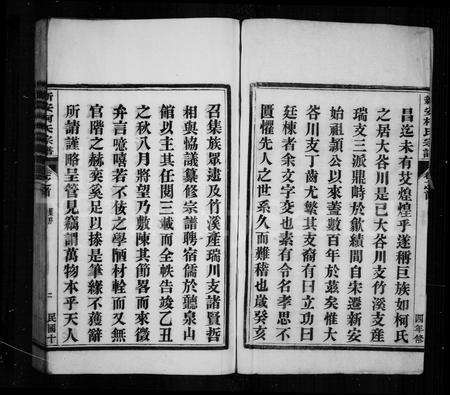 昌迄未有艾煌煌乎遂稱巨族如柯氏
之居大谷川是已大谷川支竹溪支產
瑞支三派鼎峙於歙績間自宋遷新安
始祖諱公以來蓋數百年於茲矣惟大
谷川支丁齒尤繁其支裔有曰立功曰
廷棟者余文字交也素有令名孝思不
匱懼先人之世系久而難稽也歲癸亥
召集族眾建及竹溪產瑞川支諸賢哲
相與協議兼修宗譜聘宿儒於聽泉山
館以主其任閱三載而全帙告竣乙丑
之秋八月將望乃敷陳其節畧而來徵
弁言噫嘻若不佞之學陋材輇而又無
官階之赫奕奚足以搽是筆緣不蕹辭
所請謹略呈管見竊謂萬物本乎天人
新安柯氏宗譜
卷首
二
民國十
四年叙